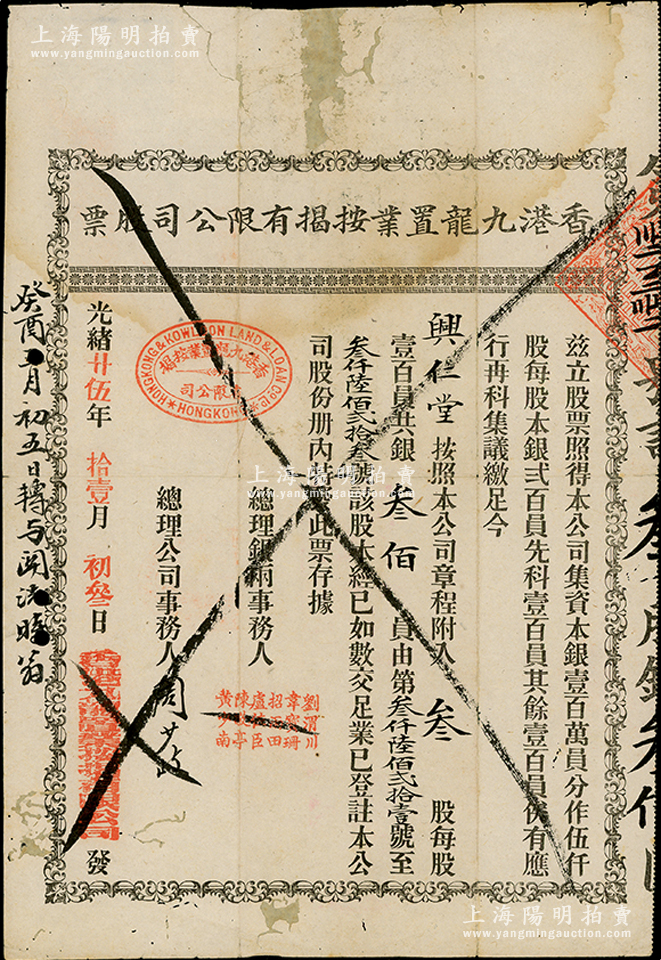 上海陽明拍賣
www.yangmingauction.com
香港九龍置業按揭有限公司股票
茲立股票照得本公司集資本銀壹百萬員分作伍仟
股每股本銀弍百員先科壹百員其餘壹百員俟有應
行再科集議繳足今
興仁堂 按照本公司章程附入 叁 股每股
壹百員共銀 叁佰 員由第叁仟陸佰弍拾壹號至
叁仟陸佰弍拾叁 該股本經已如數交足業已登註本公
司股份册內 此票存據
總理銀兩事務人
劉渭川
章 珊
招 田
盧 臣
陳 亭
黃 南
總理公司事務人
光緒廿伍年 拾壹月 初叁日
發
HONGKONG & KOWLOON LAND & LOAN Co. Ld.
香港九龍置業按揭
有限公司
HONGKONG
癸酉 月初五日轉与
上海陽明拍賣
www.yangmingauction.com
上海陽明拍賣
www.yangmingauction.com